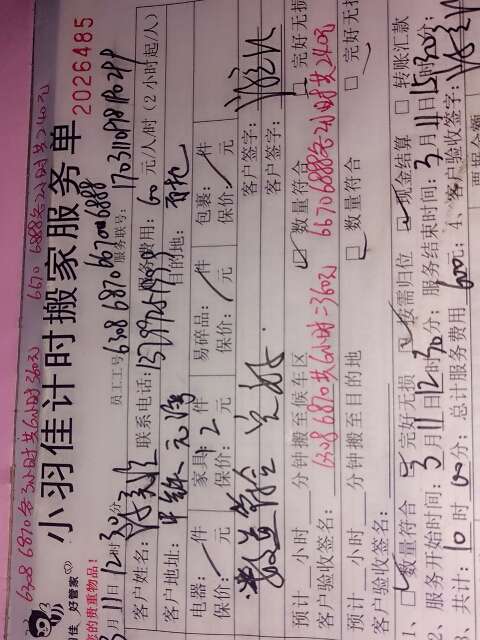 6308 6870各3小时共6小时360元 6670 6888各2小时共240元
小羽佳计时搬家服务单 2026485
佳 好管家
您的贵重物品!
员工工号 6308 6870 6670 6888 服务联号:
3月11日12时30分
客户姓名: 联系电话: 服务费用:60元/人/时(2小时起/人)
客户地址: 中铁元湾 目的地: 百地
电器: 件 家具: 2 件 易碎品: 件 包裹: 件
保价: 元 保价: 元 保价: 元 保价: 元
数量单位 完好 客户签字:
客户签字:
预计 小时 分钟搬至候车区 数量符合 完好无损
客户验收签名: 6308 6870共6小时=360元 6670 6888各2小时共240元
预计 小时 分钟搬至目的地 数量符合 完好无损
客户验收签名:
1、 数量符合 完好无损 按需归位 现金结算 转账汇款
2、服务开始时间:3月11日12时30分; 服务结束时间:3月11日15时30分
3、共计:10时00分; 总计服务费用 600元; 4、客户验收签字:
票据金额